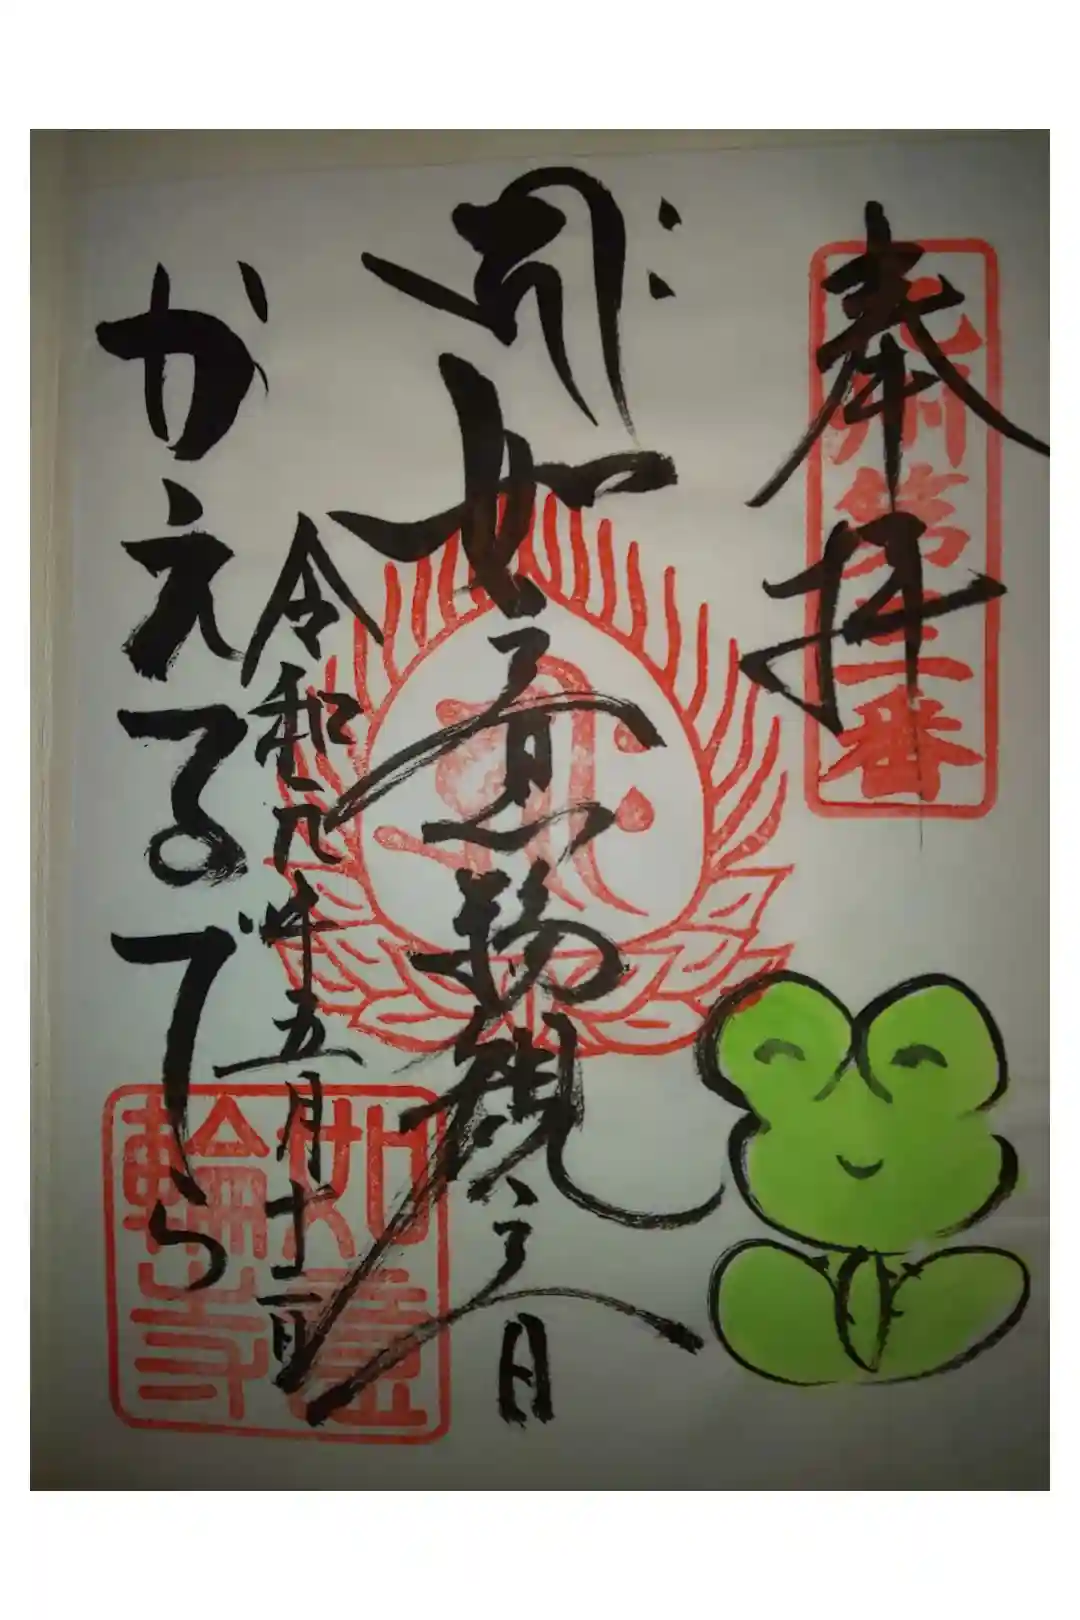 奉拝
九州第三番
ह्रीः
如意輪観音
令和元年五月十二日
かえるでら
如意輪寺